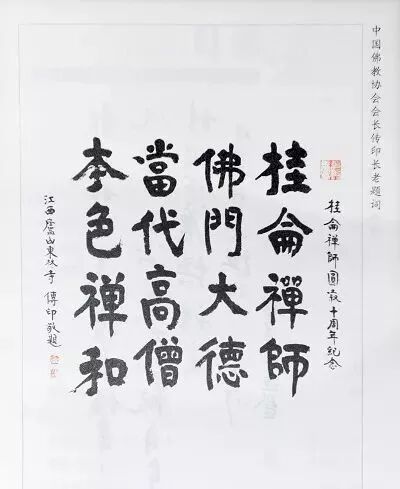 中国佛教协会会长传印长老题词
桂侖禪師圓寂十周年纪念
桂侖禪師
佛門大德
當代高僧
本色禅和
江西廬山東林寺 傳印敬題